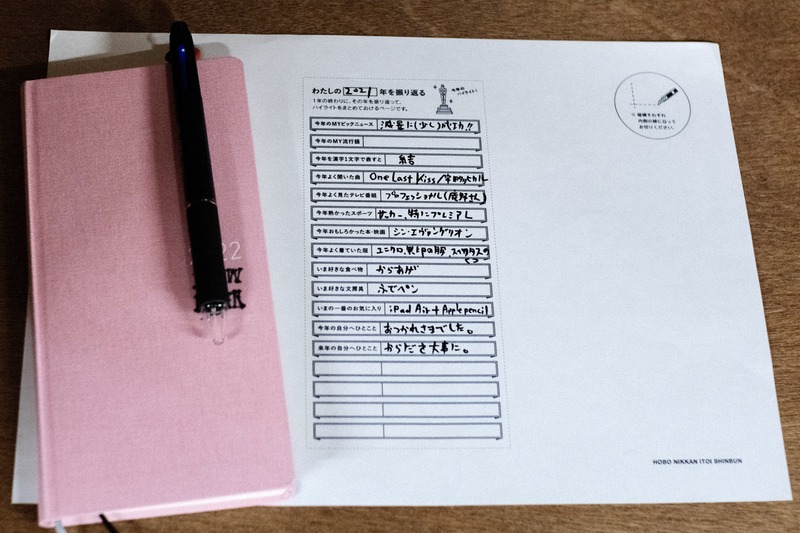 わたしの 2021 年を振り返る
1年の終わりに、その年を振り返って、
ハイライトをまとめておけるページです。
今年の
ハイライト!
今年のMYビックニュース 減量に(少し)成功!!
今年のMY流行語
今年を漢字1文字で表すと 結
今年よく聞いた曲 One Last Kiss/
今年よく見たテレビ番組 プロフェッショナル(庵野さん)
今年熱かったスポーツ サッカー、特にプレミアL
今年おもしろかった本・映画 シン・エヴァンゲリオン
今年よく着ていた服 ユニクロ、無印の服、
いま好きな食べ物 からあげ
いま好きな文房具 ふでペン
いまの一番のお気に入り iPad Air + Apple pencil
今年の自分へひとこと おつかれさまでした。
来年の自分へひとこと からだを大事に。
※ 縦横それぞれ
内側の線に沿って
お切りください。
22
HOBO NIKKAN ITOI SHINBUN